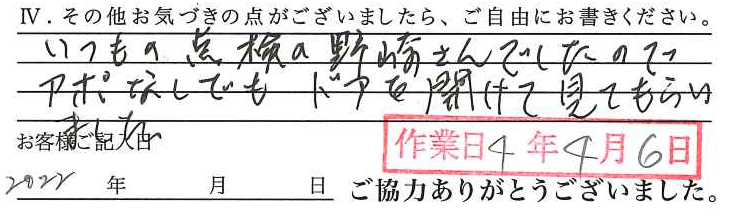 Ⅳ．その他お気づきの点がございましたら、ご自由にお書きください。
いつもの点検の野崎さんでしたので
アポなしでもドアを開けて見てもらい
ました
お客様ご記入日
作業日4年4月6日
2022年 月 日 ご協力ありがとうございました。